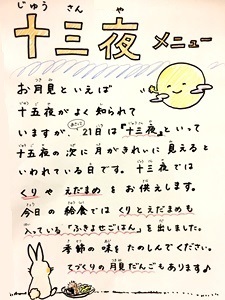 じゅう さん や
十三夜 メニュー
お月見といえば
十五夜がよく知られて
いますが、21日は『十三夜』といって
十五夜の次に月がきれいに見えると
いわれている日です。十三夜では
くりやえだまめをお供えします。
今日の給食ではくりとえだまめも
入っている「ふきよせごはん」を出しました。
季節の味をたのしんでください。
てづくりの月見だんごもあります♪